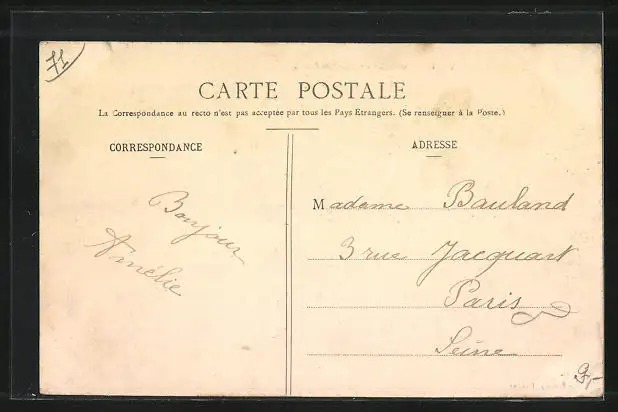 71
CARTE POSTALE
La Correspondance au recto n'est pas acceptée par tous les Pays Etrangers. (Se renseigner à la Poste.)
CORRESPONDANCE
Bonjour
Amélie
ADRESSE
Madame Bauland
3 rue Jacquart
Paris
Seine